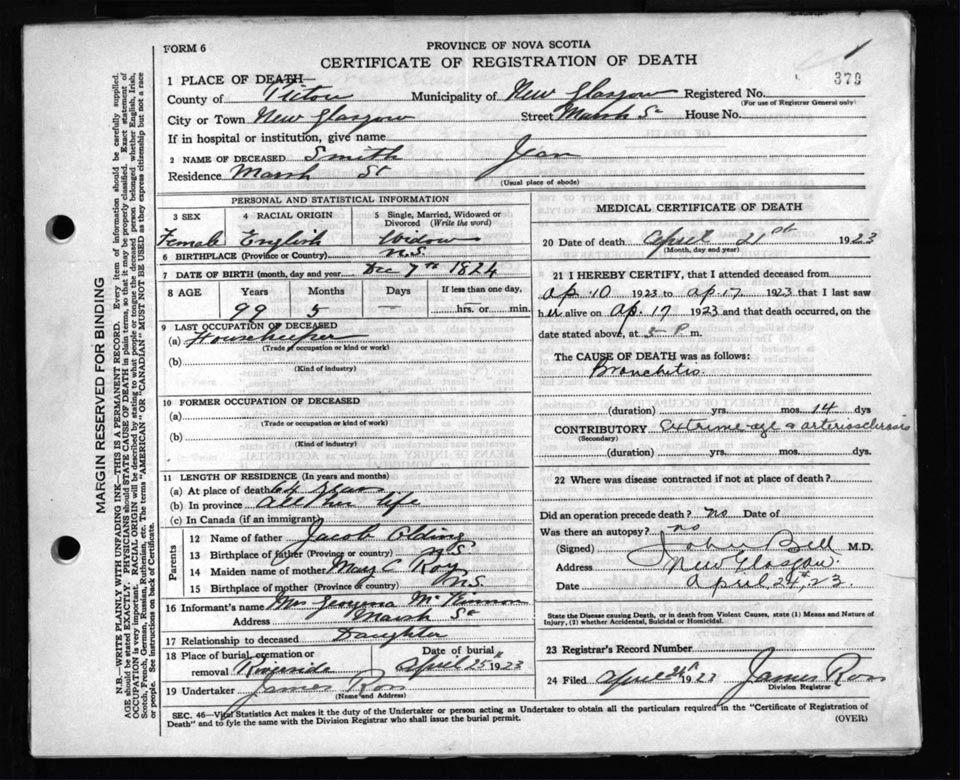 FORM 6
PROVINCE OF NOVA SCOTIA
CERTIFICATE OF REGISTRATION OF DEATH
379
1 PLACE OF DEATH
County of Pictou Municipality of New Glasgow Registered No.
(For use of Registrar General only)
City or Town New Glasgow Street Marsh St House No.
If in hospital or institution, give name
2 NAME OF DECEASED Smith Jean
Residence Marsh St
(Usual place of abode)
PERSONAL AND STATISTICAL INFORMATION
3 SEX 4 RACIAL ORIGIN 5 Single, Married, Widowed or Divorced (Write the word)
Female English Widow
6 BIRTHPLACE (Province or Country) N.S.
7 DATE OF BIRTH (month, day and year) Dec 7th 1824
8 AGE Years Months Days If less than one day,
99 5 — hrs. or min.
9 LAST OCCUPATION OF DECEASED
(a) Housekeeper
(Trade or occupation or kind of work)
(b)
(Kind of industry)
10 FORMER OCCUPATION OF DECEASED
(a)
(Trade or occupation or kind of work)
(b)
(Kind of industry)
11 LENGTH OF RESIDENCE (In years and months)
(a) At place of death 64 years
(b) In province all her life
(c) In Canada (if an immigrant)
Parents
12 Name of father Jacob Olding
13 Birthplace of father (Province or country) N.S
14 Maiden name of mother Mary C Roy
15 Birthplace of mother (Province or country) N.S.
16 Informant's name Mrs Georgena McKinnon
Address Marsh St
17 Relationship to deceased Daughter
18 Place of burial, cremation or removal Riverside Date of burial April 25 1923
19 Undertaker James Ross
(Name and Address)
MEDICAL CERTIFICATE OF DEATH
20 Date of death April 21st 1923
(Month, day and year)
21 I HEREBY CERTIFY, that I attended deceased from
Ap. 10 1923 to Ap. 17 1923 that I last saw
her alive on Ap. 17 1923 and that death occurred, on the
date stated above, at 5 P m.
The CAUSE OF DEATH was as follows:
Bronchitis.
(duration) yrs. mos. 14 dys
CONTRIBUTORY Extreme age & arteriosclerosis
(Secondary)
(duration) yrs. mos. dys.
22 Where was disease contracted if not at place of death?
Did an operation precede death? no Date of
Was there an autopsy? no
(Signed) John Bell M.D.
Address New Glasgow.
Date April, 24th, 23.
State the Disease causing Death, or in death from Violent Causes, state (1) Means and Nature of
Injury, (2) whether Accidental, Suicidal or Homicidal.
23 Registrar's Record Number
24 Filed April 24th 1923 James Ross
Division Registrar
SEC. 46—Vital Statistics Act makes it the duty of the Undertaker or person acting as Undertaker to obtain all the particulars required in the "Certificate of Registration of
Death" and to fyle the same with the Division Registrar who shall issue the burial permit. (OVER)
MARGIN RESERVED FOR BINDING
N.B.—WRITE PLAINLY WITH UNFADING INK—THIS IS A PERMANENT RECORD. Every item of information should be carefully supplied.
AGE should be stated EXACTLY. PHYSICIANS should STATE CAUSE OF DEATH in plain terms, so that it may be properly classified. Exact statement of
OCCUPATION is very important. RACIAL ORIGIN will be described by stating to what people or tongue the deceased person belonged, whether English, Irish,
Scotch, French, German, Russian, Ruthenian, etc. The terms "AMERICAN" OR "CANADIAN" MUST NOT BE USED as they express citizenship but not a race
or people. See instructions on back of Certificate.